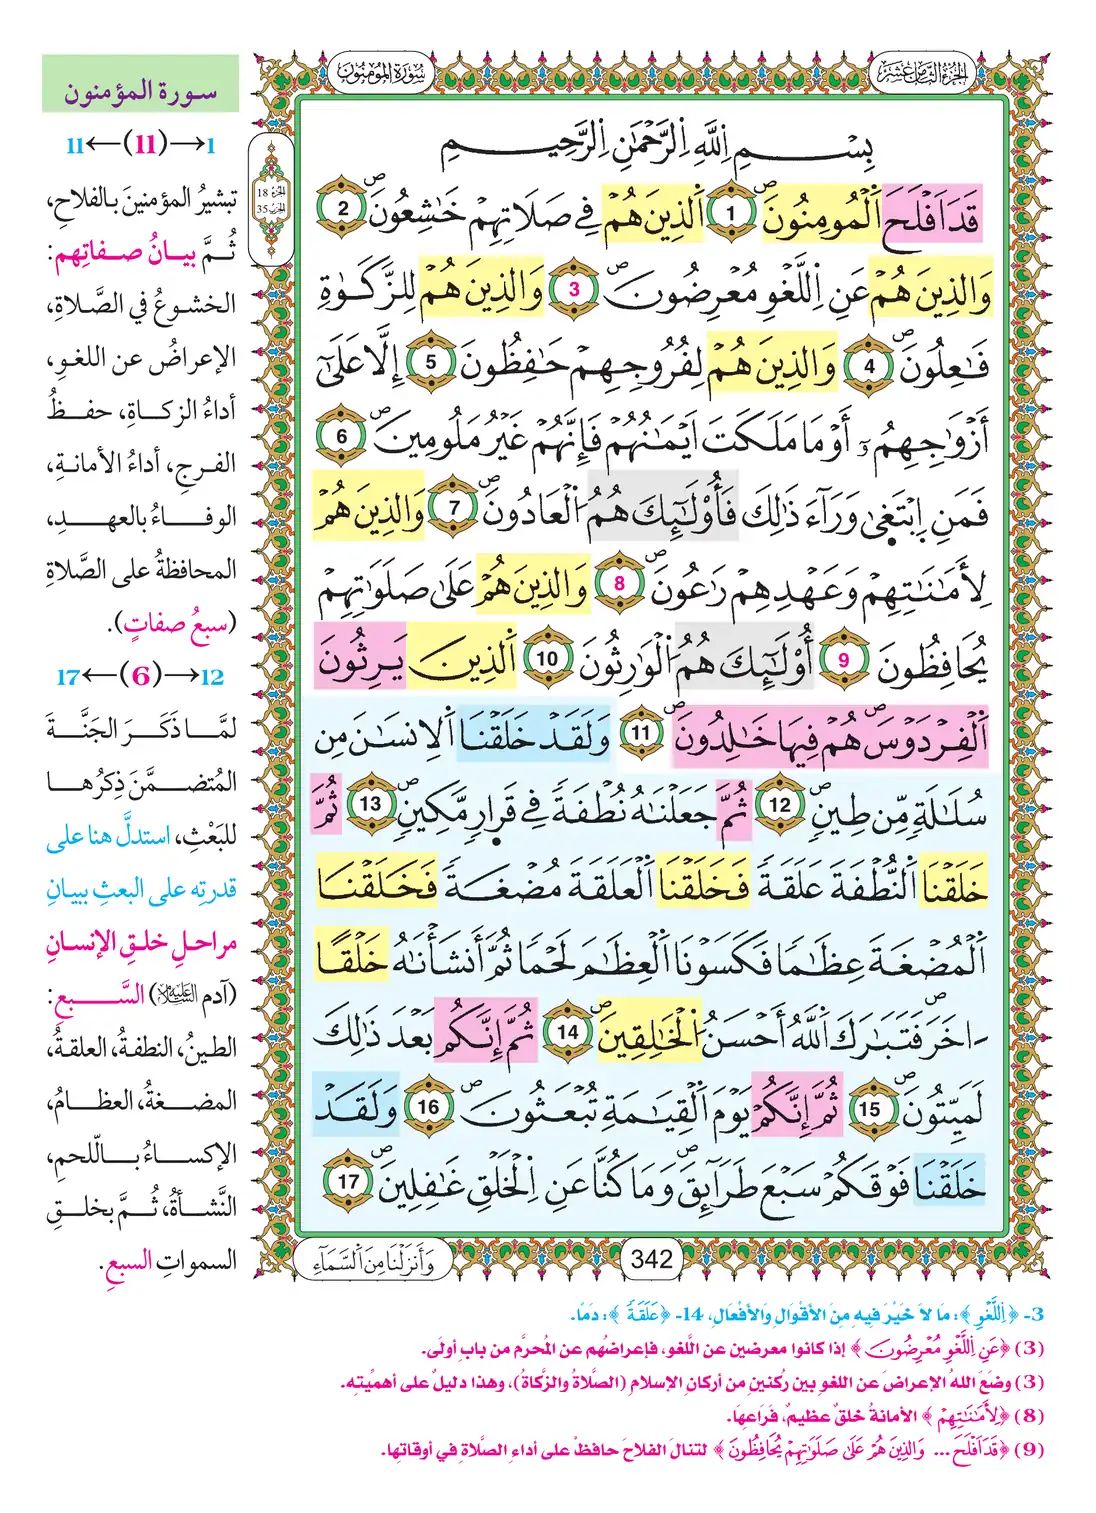 الجزء الثامن عشر
سورة المومنون
بِسْمِ اِللَّهِ اِلرَّحْمَٰنِ اِلرَّحِيمِ
قَدَ اَفْلَحَ اَلْمُومِنُونَ 1 اَلذِينَ هُمْ فِي صَلَاتِهِمْ خَٰشِعُونَ 2
وَالذِينَ هُمْ عَنِ اِللَّغْوِ مُعْرِضُونَ 3 وَالذِينَ هُمْ لِلزَّكَوٰةِ
فَٰعِلُونَ 4 وَالذِينَ هُمْ لِفُرُوجِهِمْ حَٰفِظُونَ 5 إِلَّا عَلَىٰٓ
أَزْوَٰجِهِمُۥٓ أَوْ مَا مَلَكَتَ اَيْمَٰنُهُمْ فَإِنَّهُمْ غَيْرُ مَلُومِينَ 6
فَمَنِ اِبْتَغَىٰ وَرَآءَ ذَٰلِكَ فَأُوْلَٰٓئِكَ هُمُ اُلْعَادُونَ 7 وَالذِينَ هُمْ
لِأَمَٰنَٰتِهِمْ وَعَهْدِهِمْ رَٰعُونَ 8 وَالذِينَ هُمْ عَلَىٰ صَلَوَٰتِهِمْ
يُحَافِظُونَ 9 أُوْلَٰٓئِكَ هُمُ اُلْوَٰرِثُونَ 10 اَلذِينَ يَرِثُونَ
اَلْفِرْدَوْسَ هُمْ فِيهَا خَٰلِدُونَ 11 وَلَقَدْ خَلَقْنَا اَلِانسَٰنَ مِن
سُلَٰلَةٍ مِّن طِينٍ 12 ثُمَّ جَعَلْنَٰهُ نُطْفَةً فِي قَرَارٍ مَّكِينٍ 13 ثُمَّ
خَلَقْنَا اَلنُّطْفَةَ عَلَقَةً فَخَلَقْنَا اَلْعَلَقَةَ مُضْغَةً فَخَلَقْنَا
اَلْمُضْغَةَ عِظَٰمًا فَكَسَوْنَا اَلْعِظَٰمَ لَحْمًا ثُمَّ أَنشَأْنَٰهُ خَلْقًا
اٰخَرَ فَتَبَٰرَكَ اَللَّهُ أَحْسَنُ اُلْخَٰلِقِينَ 14 ثُمَّ إِنَّكُم بَعْدَ ذَٰلِكَ
لَمَيِّتُونَ 15 ثُمَّ إِنَّكُمْ يَوْمَ اَلْقِيَٰمَةِ تُبْعَثُونَ 16 وَلَقَدْ
خَلَقْنَا فَوْقَكُمْ سَبْعَ طَرَآئِقَ وَمَا كُنَّا عَنِ اِلْخَلْقِ غَٰفِلِينَ 17
وَأَنزَلْنَا مِنَ اَلسَّمَآءِ
342
الجزء 18
الحزب 35
سورة المؤمنون
1→(11)←11
تبشيرُ المؤمنينَ بالفلاحِ،
ثُمَّ بيانُ صفاتِهم:
الخشوعُ في الصَّلاةِ،
الإعراضُ عن اللغوِ،
أداءُ الزكاةِ، حفظُ
الفرجِ، أداءُ الأمانةِ،
الوفاءُ بالعهدِ،
المحافظةُ على الصَّلاةِ
(سبعُ صفاتٍ).
12→(6)←17
لمَّا ذَكَرَ الجَنَّةَ
المُتضمَّنَ ذِكرُها
للبَعْثِ، استدلَّ هنا على
قدرتِه على البعثِ ببيانِ
مراحلِ خلقِ الإنسانِ
(آدم عليه السلام) السَّبعِ:
الطينُ، النطفةُ، العلقةُ،
المضغةُ، العظامُ،
الإكساءُ باللّحمِ،
النَّشأةُ، ثُمَّ بخلقِ
السمواتِ السبعِ.
3- ﴿اِللَّغْوِ﴾: مَا لاَ خَيْرَ فِيهِ مِنَ الأَقْوَالِ وَالأَفْعَالِ، 14- ﴿عَلَقَةً﴾: دَمًا.
(3) ﴿عَنِ اِللَّغْوِ مُعْرِضُونَ﴾ إذا كانوا معرضين عن اللَّغو، فإعراضُهم عن المُحرَّم من بابِ أولَى.
(3) وضَعَ اللهُ الإعراضَ عن اللغوِ بين ركنينِ من أركانِ الإسلامِ (الصَّلاةُ والزَّكاةُ)، وهذا دليلٌ على أهميِّتِه.
(8) ﴿لِأَمَٰنَٰتِهِمْ﴾ الأمانةُ خلقٌ عظيمٌ، فَرَاعِهَا.
(9) ﴿قَدَ اَفْلَحَ ... وَالذِينَ هُمْ عَلَىٰ صَلَوَٰتِهِمْ يُحَافِظُونَ﴾ لتنالَ الفلاحَ حافظْ على أداءِ الصَّلاةِ في أوقاتِها.